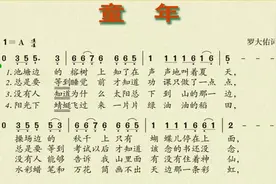 童 年
1=A 4/4 罗大佑词
0 355 ·3 | 6676 665 | 3 1 1611 | 1
1.池塘边 的 榕树 上 知了在 声 声地叫着夏 天,
2.总是要 等到睡觉 前 才知道 功 课只做了一 点,
3.没有人 知道为什 么 太阳总 下 到 山的那一 边,
4.阳光下 蜻蜓飞过 来 一片片 绿 油 油的 稻 田,
0 355 ·3 | 6676 665 | 3 1 1611 | 1
操场边 的 秋千 上 只有 蝴 蝶儿停在 上 面,
总是要 等到 考试以后 才知道 该 念的书还没 念,
没有人 能够 告诉 我 山里面 有 没有住着 神 仙,
水彩蜡 笔和 万花 筒 画不出 天 边那一条彩 虹,